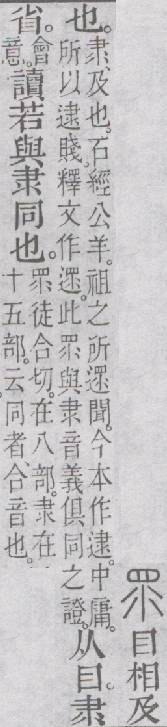 眔目相及
也。隶,及也。石經公羊。祖之所遝聞。今本作逮。中庸。
所以逮賤。釋文作遝。此眔與隶音義俱同之證。从目。隶
省。會
意。讀若與隶同也。眔徒合切。在八部。隶在
十五部。云同者合音也。